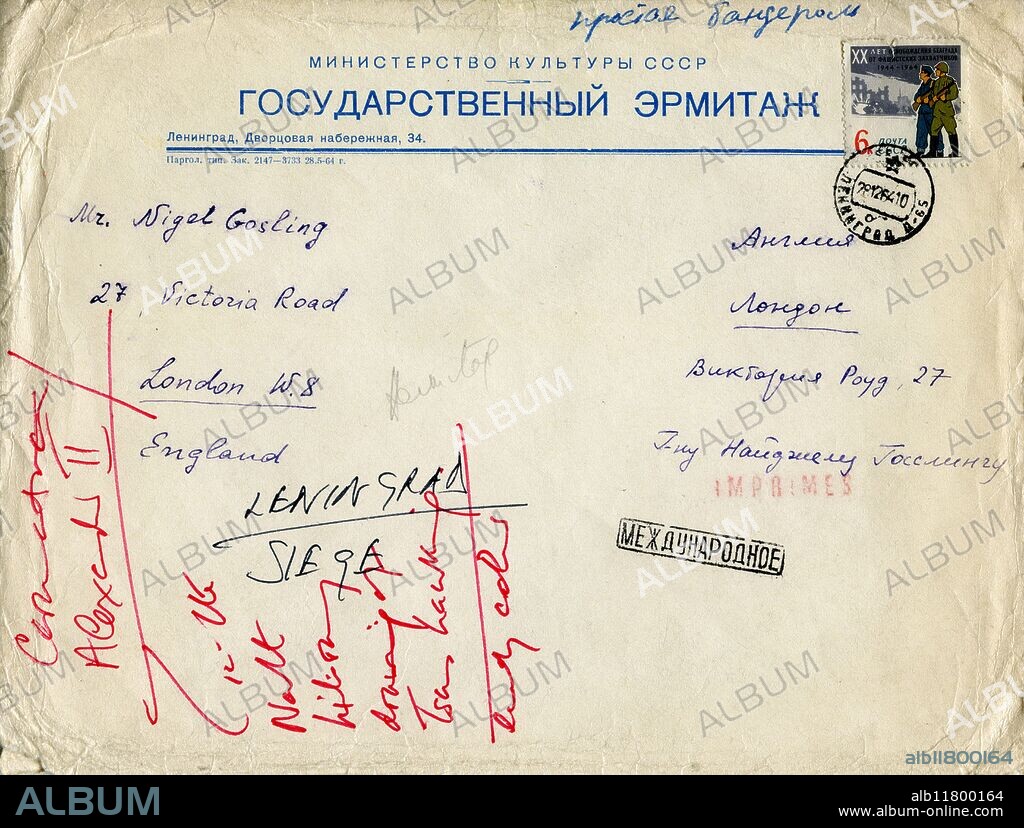 простая бандероль
МИНИСТЕРСТВО КУЛЬТУРЫ СССР
ГОСУДАРСТВЕННЫЙ ЭРМИТАЖ
Ленинград, Дворцовая набережная, 34.
Паргол. тип. Зак. 2147—3733 28.5-64 г.
XX ЛЕТ ОСВОБОЖДЕНИЯ БЕЛГРАДА
ОТ ФАШИСТСКИХ ЗАХВАТЧИКОВ
1944-1964
6к ПОЧТА
СССР
28126410
ЛЕНИНГРАД Д-65
Mr. Nigel Gosling
27, Victoria Road
London W.8
England
Англия
Лондон
Виктория Роуд, 27
Г-ну Найджелу Госслингу
IMPRIMES
МЕЖДУНАРОДНОЕ
LENINGRAD
SIEGE
II
drawing of
Tsar
ALBUM
alb11800164
ALBUM
alb11800164
www.album-online.com